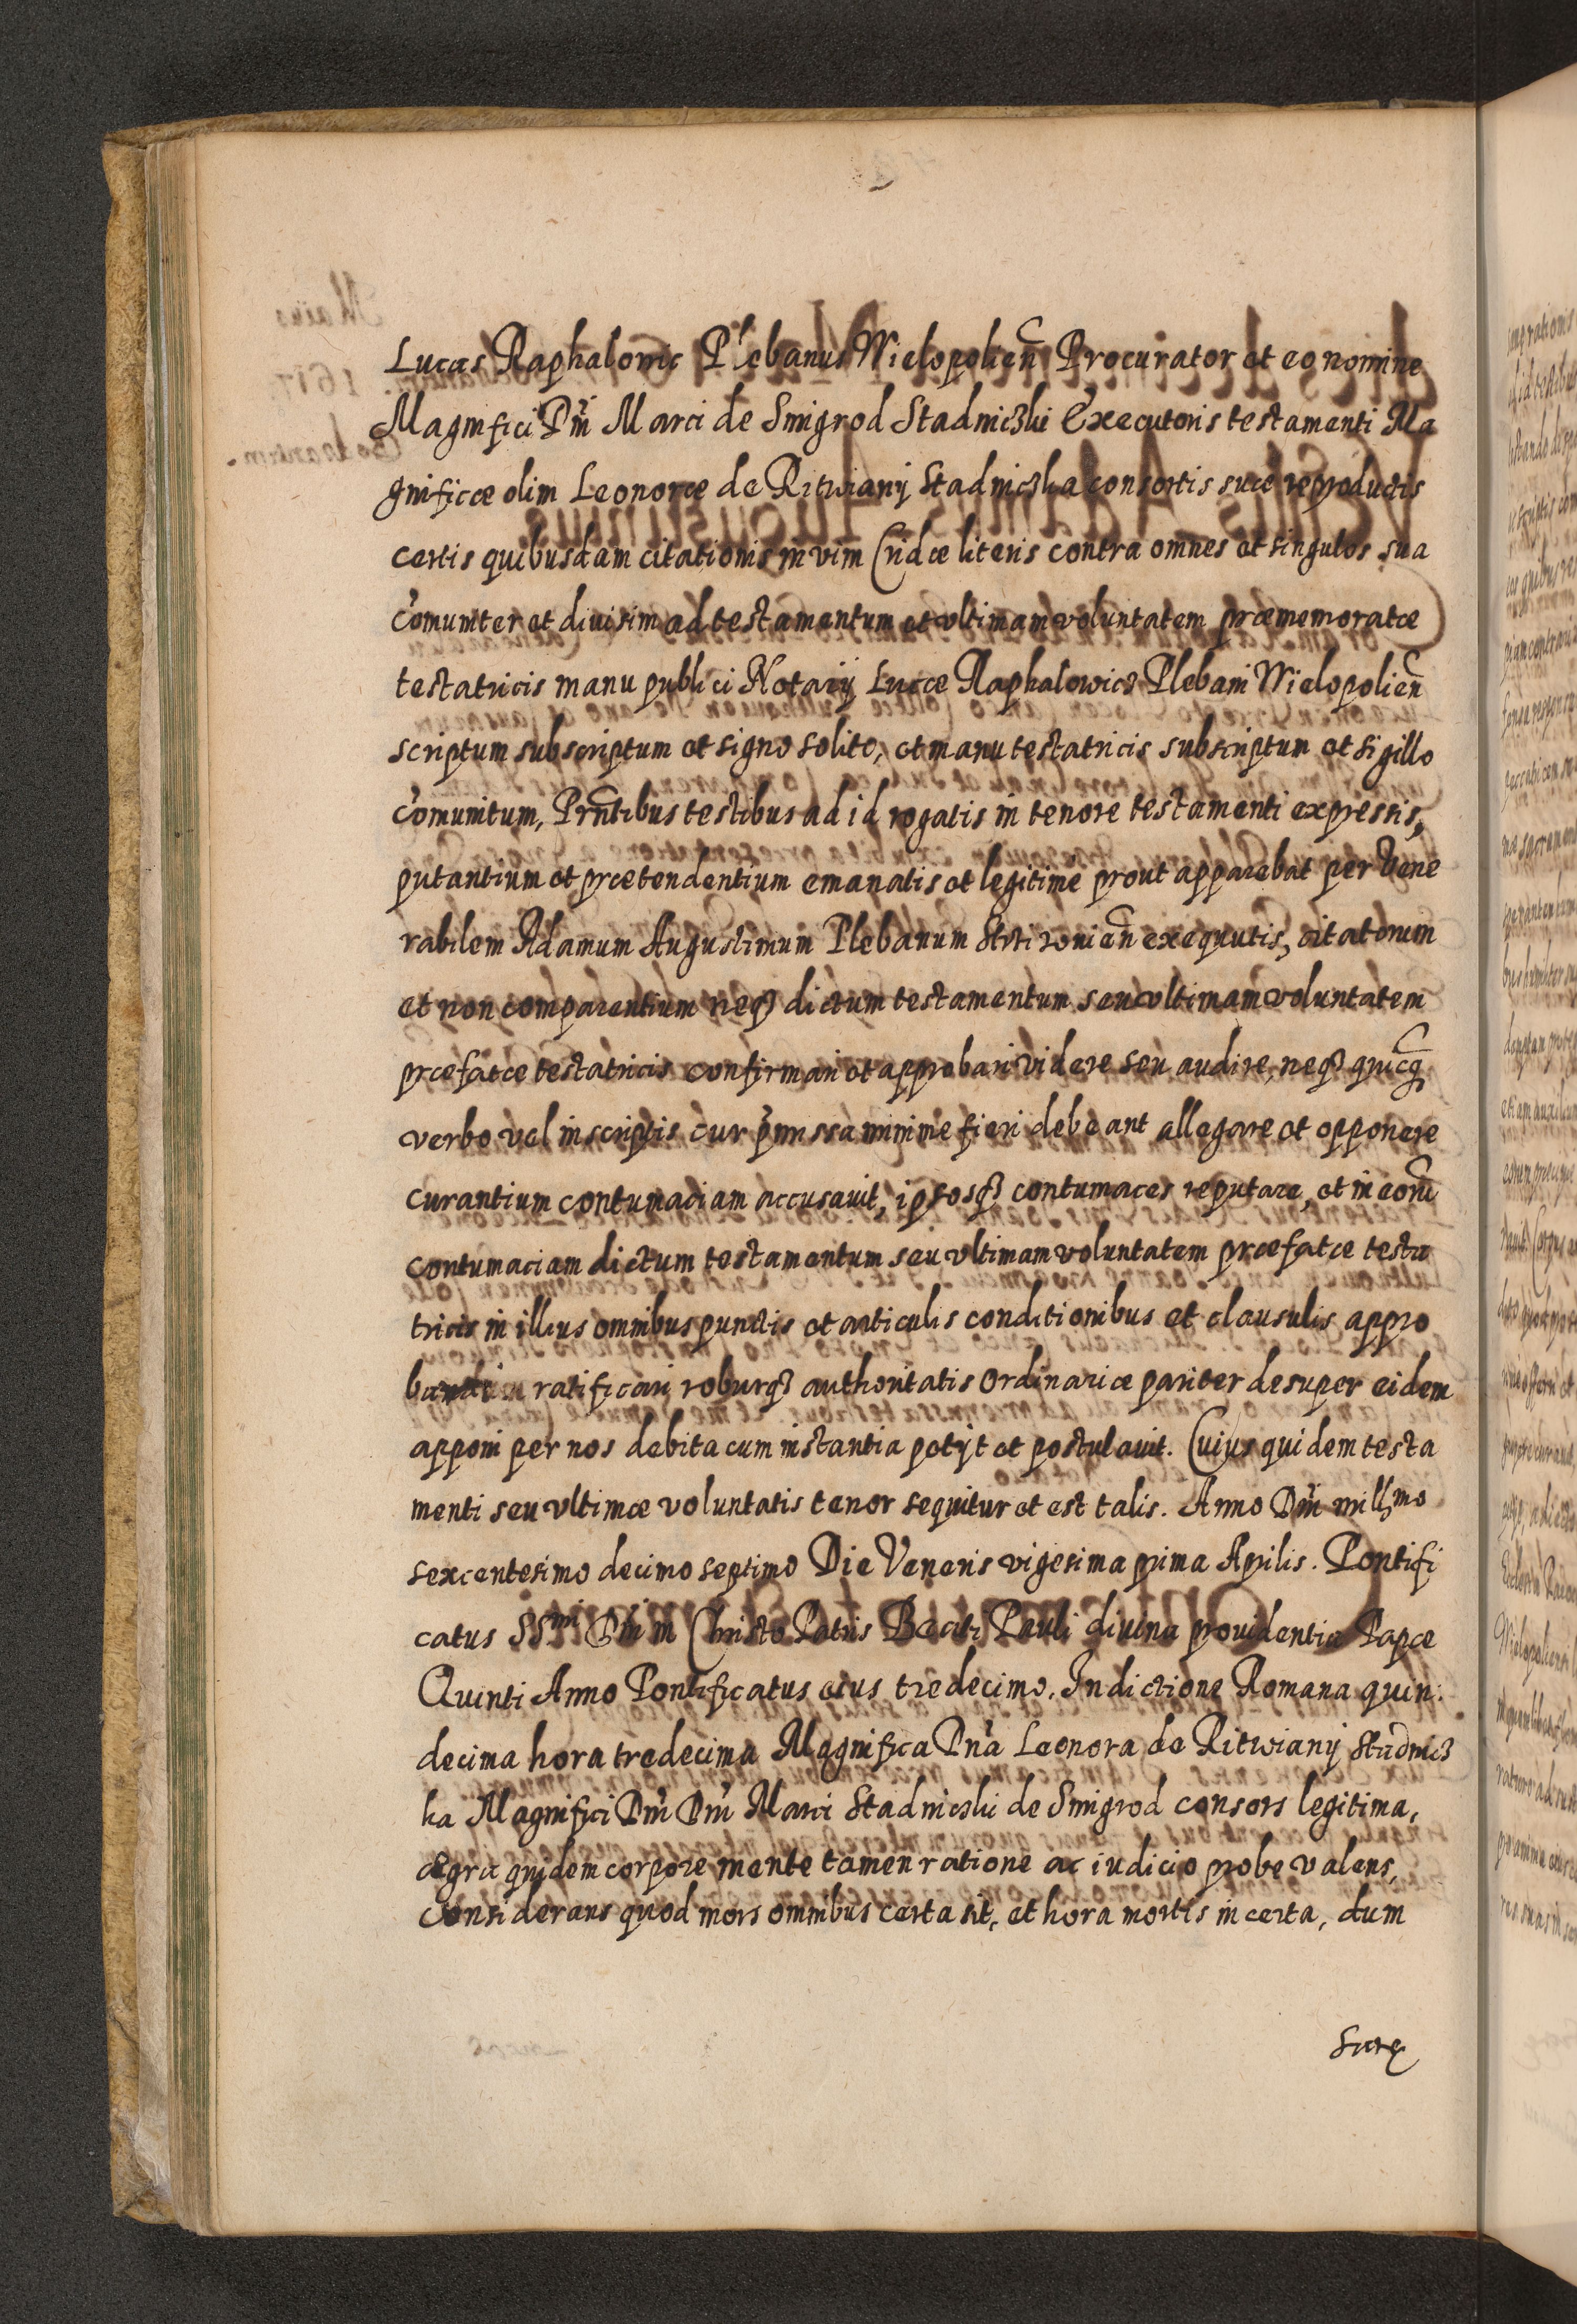 Lucas Raphalowic Plebanus Wielopolien̄ Procurator et eo nomine
Magnifici Dn̄i Marci de Smigrod Stadniczki Executoris testamenti Ma
gnificæ olim Leonoræ de Ritwiany Stadniczka consortis suæ reproductis
certis quibusdam citationis in vim Cridæ literis contra omnes et singulos sua
com̄uniter et diuisim ad testamentum et vltimam voluntatem præmemoratæ
testatricis manu publici Notarij Lucæ Raphalowicz Plebani Wielopolien̄
scriptum subscriptum et signo solito, et manu testatricis subscriptum et sigillo
com̄unitum, Prn̄tibus testibus ad id rogatis in tenore testamenti expressis,
putantium et prætendentium emanatis et legitime prout apparebat per Vene
rabilem Adamum Augustinum Plebanum exequutis, citatorum
et non comparentium neq₃ dictum testamentum seu vltimam voluntatem
præfatæ testatricis confirmari et approbari videre seu audire, neq₃ quicq̄
verbo vel in scriptis cur p̄missa minime fieri debeant allegare et opponere
curantium contumaciam accusauit, ipsosq₃ contumaces reputare, et in eorū
contumaciam dictum testamentum seu vltimam voluntatem præfatæ testa
tricis in illius omnibus punctis et articulis conditionibus et clausulis appro
ratificari, roburq₃ authoritatis Ordinariæ pariter desuper eidem
apponi per nos debita cum instantia petijt et postulauit. Cuius quidem testa
menti seu vltimæ voluntatis tenor sequitur et est talis. Anno Dn̄i mill̄mo
sexcentesimo decimo septimo Die Veneris vigesima prima Aprilis. Pontifi
catus SSmi Dn̄i in Christo Patris Beati Pauli diuina prouidentia Papæ
Quinti Anno Pontificatus eius tredecimo. Indictione Romana quin
decima hora tredecima Magnifica Dn̄a Leonora de Ritwiany Stadnicz
ka Magnifici Dn̄i Dn̄i Marci Stadniczki de Smigrod consors legitima,
ægra quidem corpore mente tamen ratione ac iudicio probe valens,
Considerans quod mors omnibus certa sit, et hora mortis incerta, dum